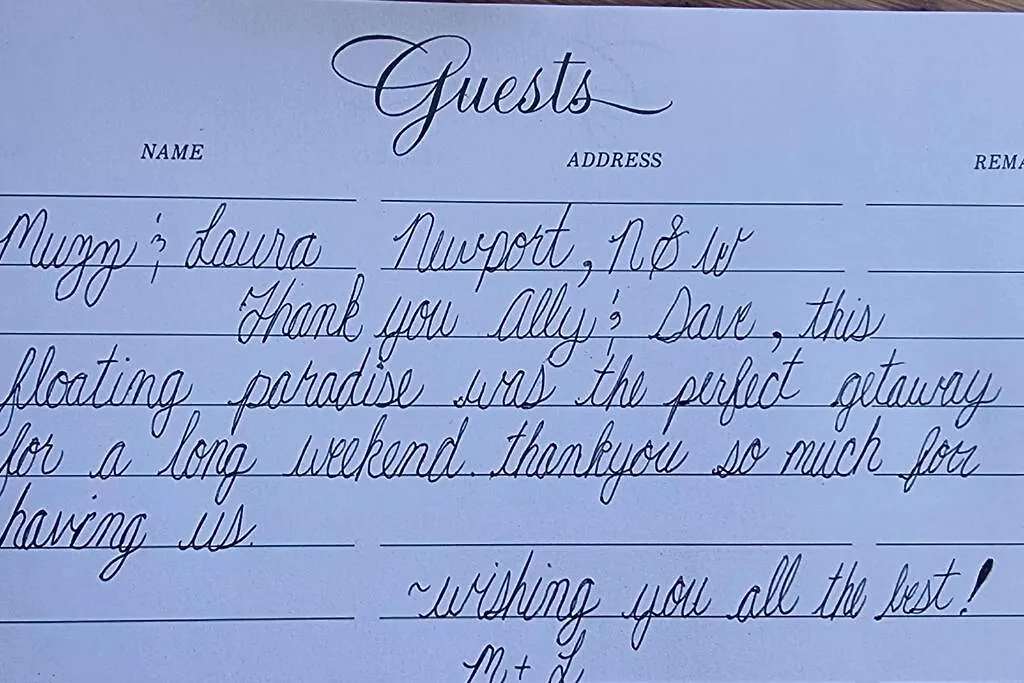 Guests
NAME ADDRESS REMA
Muzz & Laura Newport, NSW
Thank you Ally & Dave, this
floating paradise was the perfect getaway
for a long weekend. thankyou so much for
having us.
~wishing you all the best!
M + L